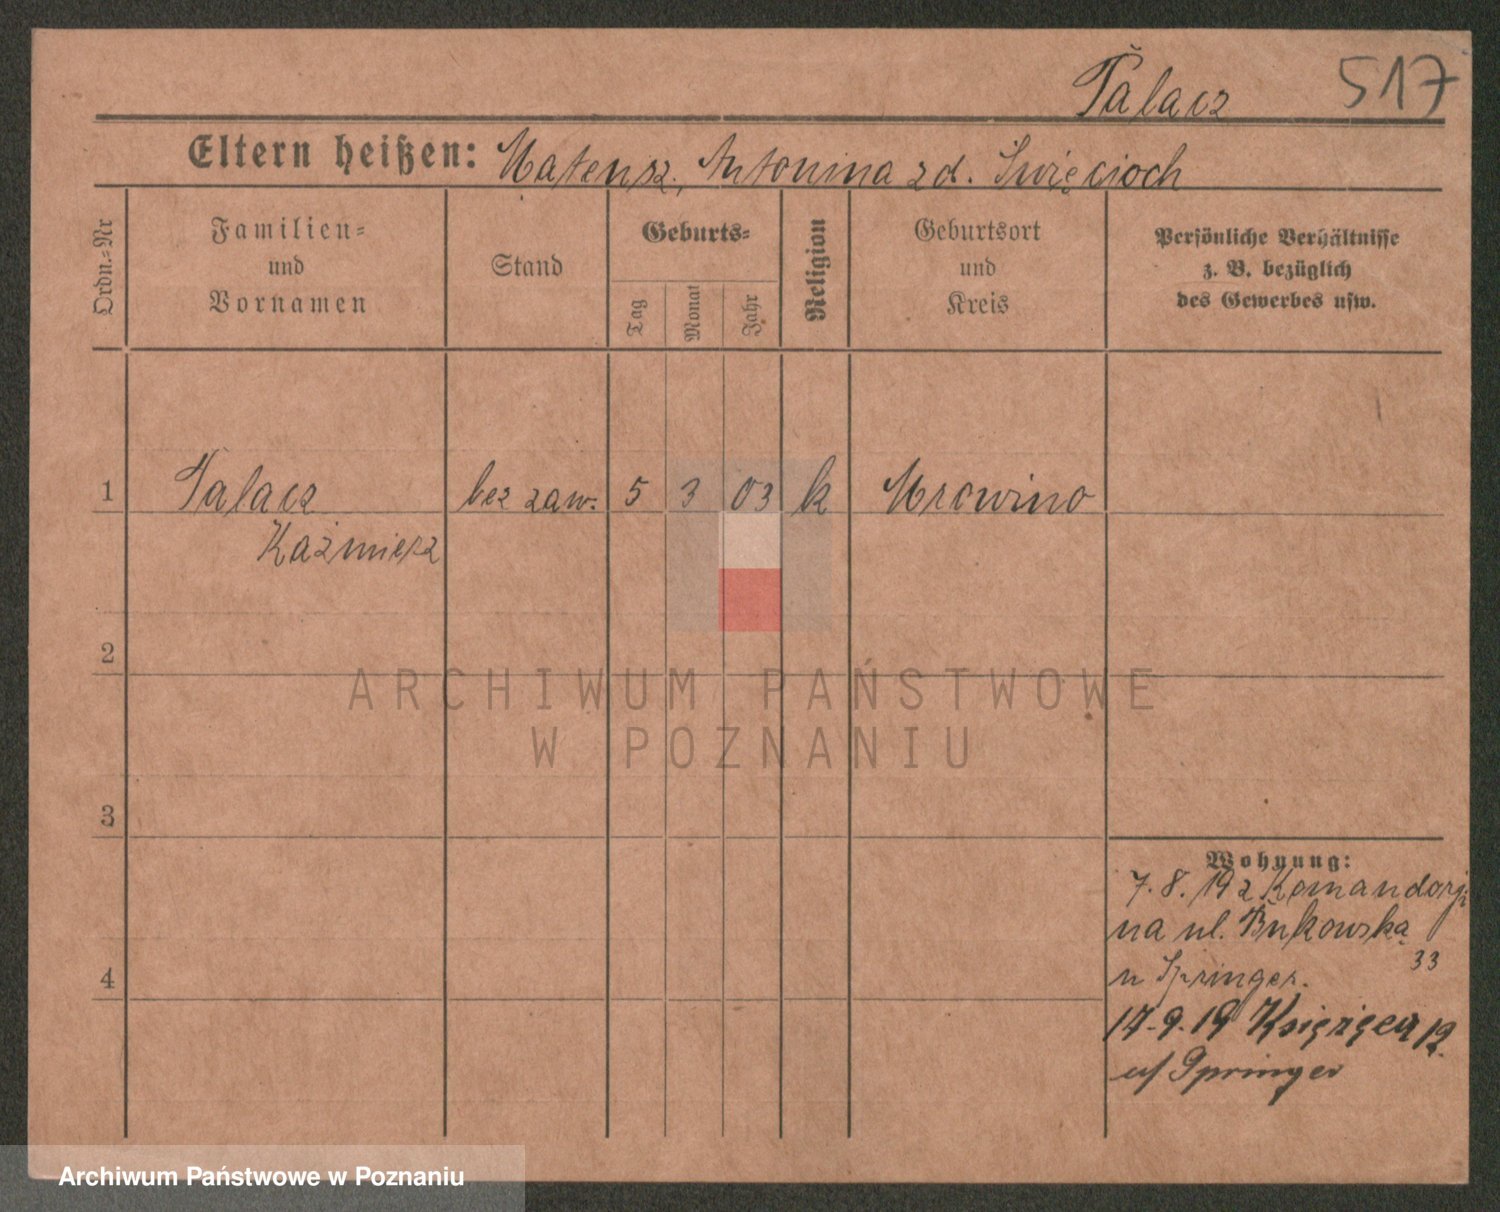 Tałacz 517
Eltern heißen: Mateusz, Antonina zd. Święcioch
Ordn.=Nr
Familien=
und
Vornamen
Stand
Geburts=
Tag
Monat
Jahr
Religion
Geburtsort
und
Kreis
Persönliche Verhältnisse
z. B. bezüglich
des Gewerbes usw.
1 Tałacz bez zaw. 5 3 03 k Mrowino
Kaźmierz
2
3
4
Wohnung:
7. 8. 192 Komandorj
na ul. Bukowska
33
u Springer.
17.9.19 Księżęca 12.
Springer
ARCHIWUM PAŃSTWOWE
W POZNANIU
Archiwum Państwowe w Poznaniu